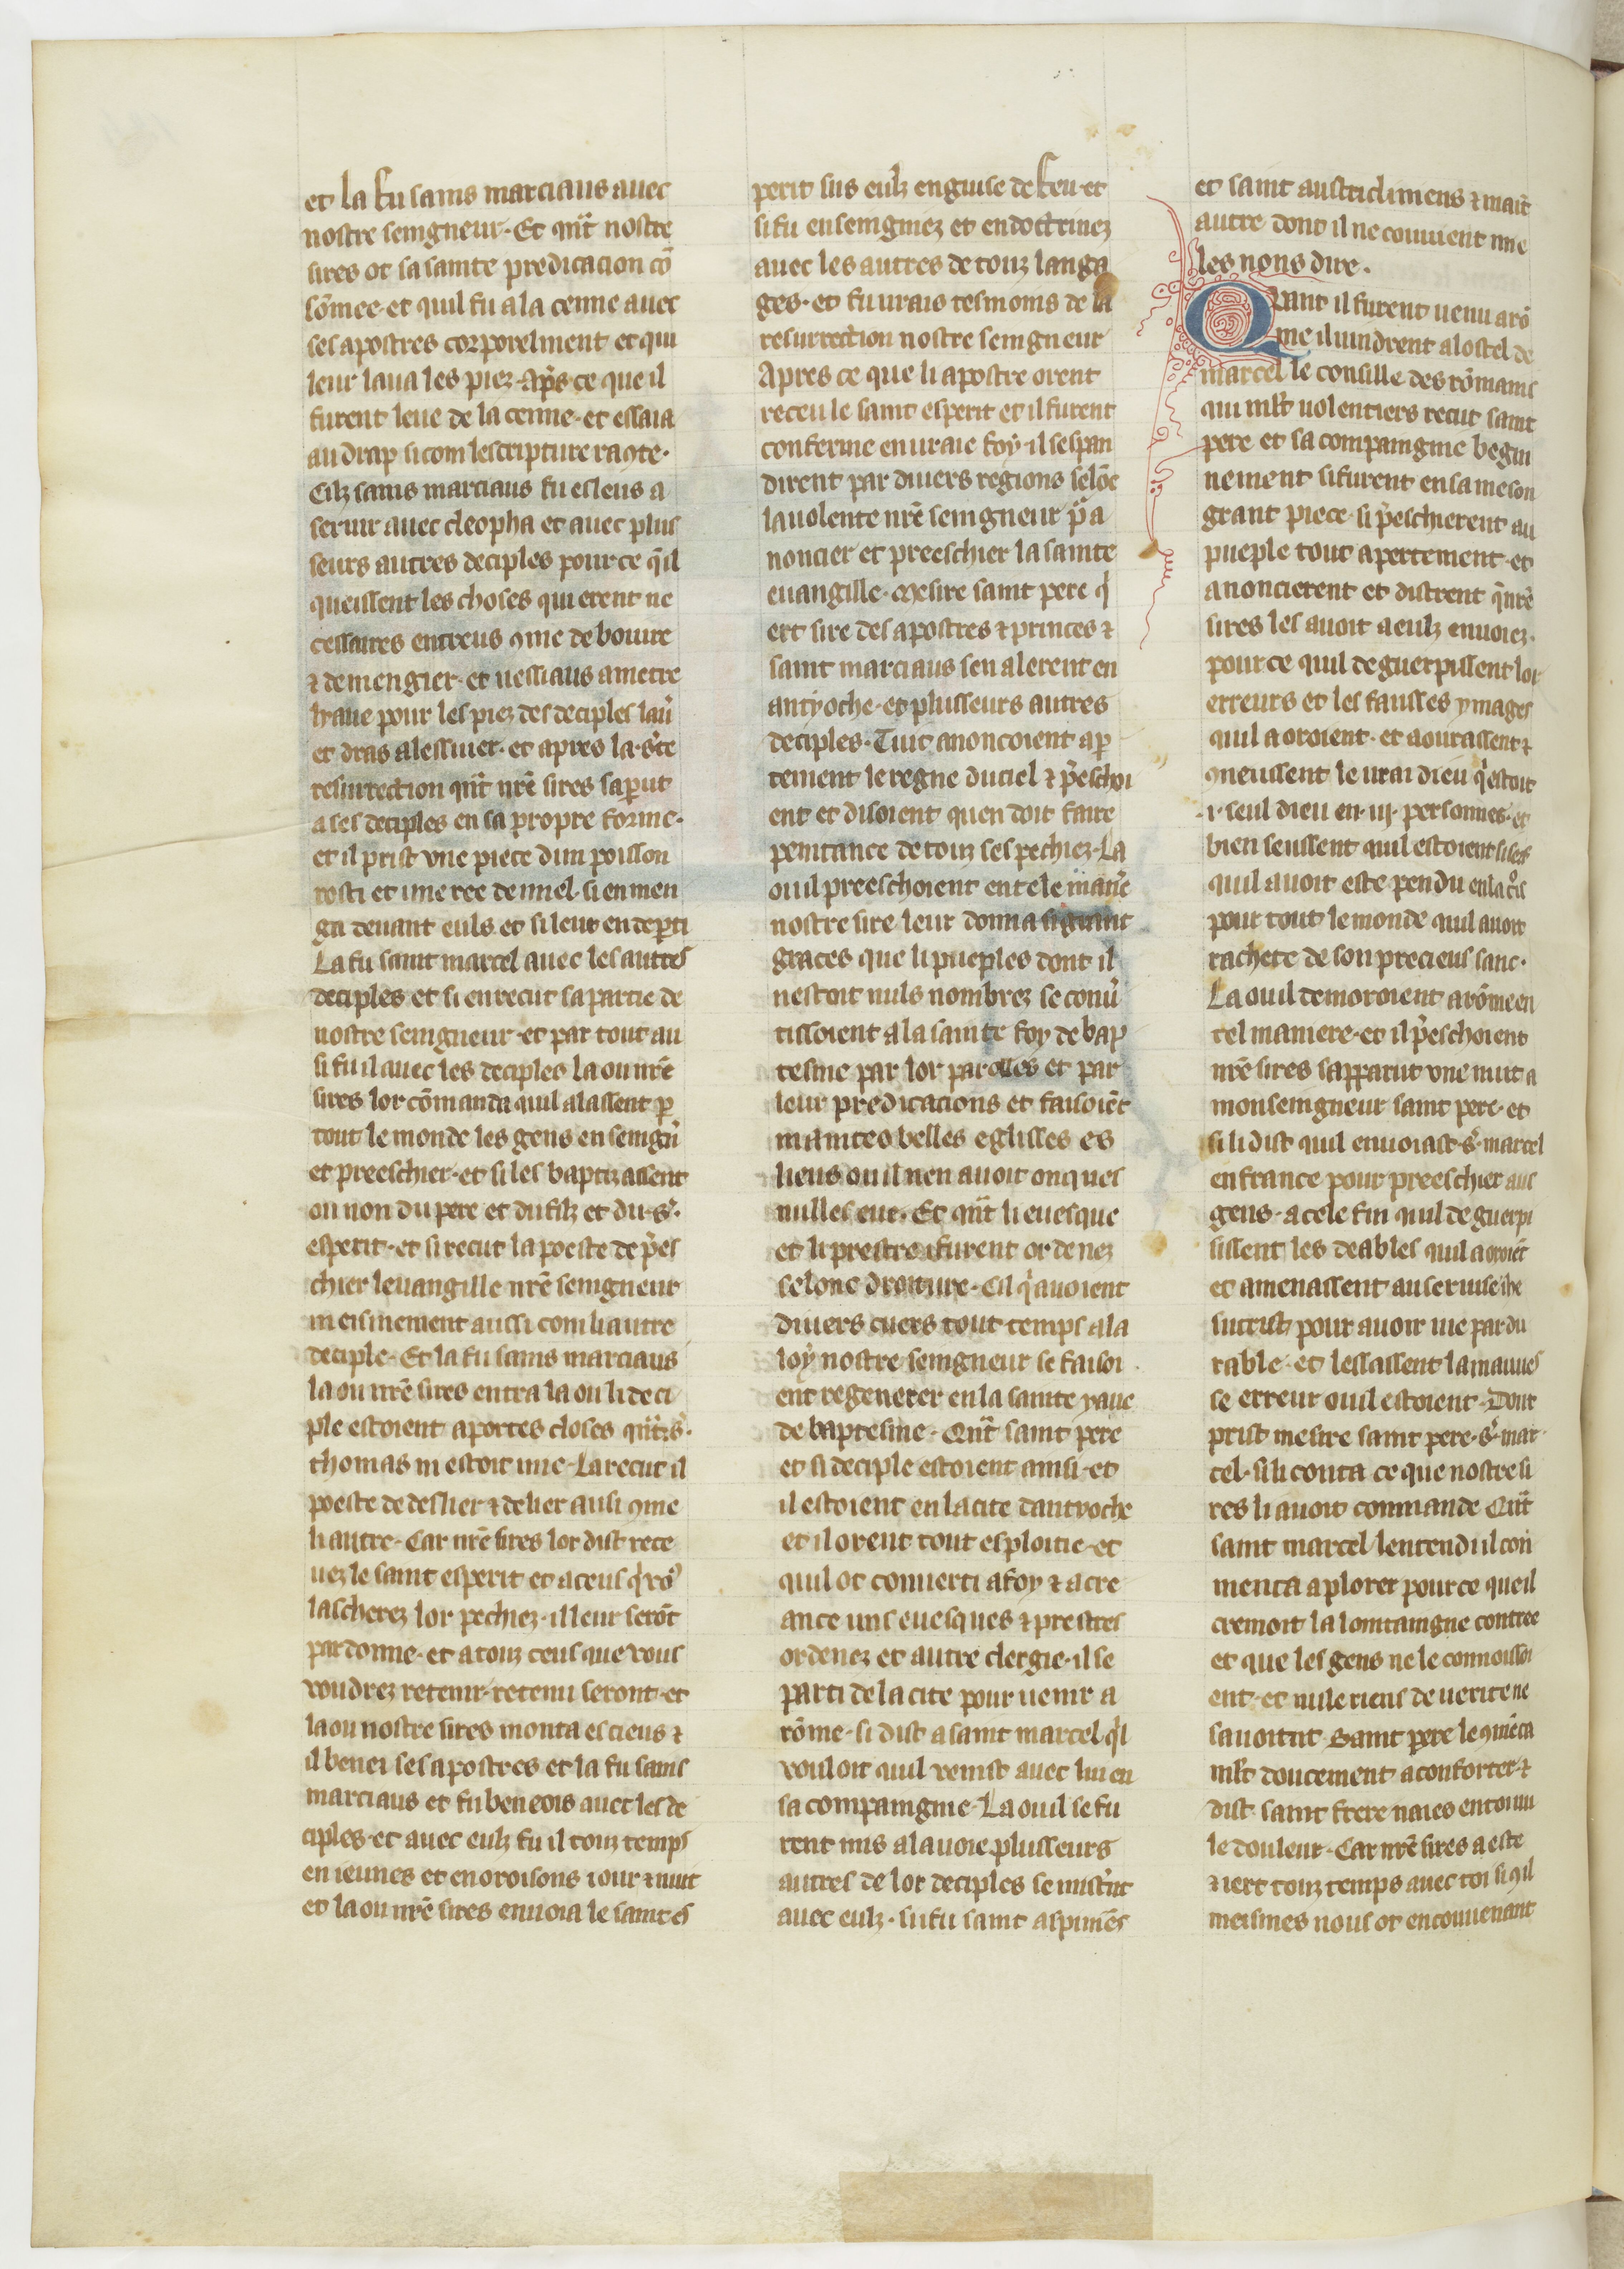 et la fu sains marciaus auec
nostre seingneur. Et qn̄t nostre
sires ot sa sainte predicacion cō
sōmee. et quil fu a la cenne auec
ses apostres corporelment et qui
leur laua les piez. Ap̄s. ce que il
furent leue de la cenne. et essaia
au drap si com lescripture racōte.
Cilz sains marciaus fu esleus a
seruir auec cleopha et auec plus
seurs autres deciples pour ce q̄ il
queissent les choses qui erent ne
cessaires entreus ꝯme de bouire
⁊ de mengier. et uessiaus a metre
lyaue pour les piez des deciples lau̾
et dras a lessuier. et apres la .s̾te
resurrection qn̄t nr̄e sires saꝑut
a ses deciples en sa propre forme.
et il prist vne piece dun poisson
rosti et une ree de miel. si en men
ga deuant euls. et si leur en deꝑti
La fu saint marcel auec les autres
deciples et si en recut sa partie de
nostre seingneur. et par tout au
si fu il auec les deciples la ou nr̄e
sires lor cōmanda quil alassent ꝑ
tout le monde les gens enseingn̾
et preeschier. et si les baptizassent
ou non du pere et du filz et du .s̾.
esperit. et si recut la poeste de p̄es
chier leuangille nr̄e seingneur
meismement aussi com li autre
deciple. Et la fu sains marciaus
la ou nr̄e sires entra la ou li deci
ple estoient a portes closes qn̄t .s̾.
thomas ni estoit mie. La recut il
poeste de deslier ⁊ de lier ausi ꝯme
li autre. Car nr̄e sires lor dist rece
uez le saint esperit et a ceus q̾ vo᷒
lascherez lor pechiez. il leur serōt
pardonne. et a touz ceus que vous
voudrez retenir. retenu seront. et
la ou nostre sires monta es cieus ⁊
il benei ses apostres et la fu sains
marciaus et fu beneois auec les de
ciples. et auec eulz fu il touz temps
en ieunes et en oroisons iour ⁊ nuit
et la ou nr̄e sires enuoia le saint es
perit sus eulz en guise de feu. et
si fu enseingniez et endoctrinez
auec les autres de touz langa
ges. et fu urais tesmoins de la
resurrection nostre seingneur
Apres ce que li apostre orent
receu le saint esperit et il furent
conferme en uraie foy. il sespan
dirent par diuers regions selōc
la uolente nr̄e seingneur p̄ a
noncier et preeschier la sainte
euangille. Mesire saint pere q̾
ert sire des apostres ⁊ princes ⁊
saint marciaus sen alerent en
antyoche. et plusseurs autres
deciples. Tuit anoncoient aꝑ
tement le regne du ciel ⁊ p̄eschoi
ent et disoient quen doit faire
penitance de touz ses pechiez. La
ou il preeschoient en tele mani̾e
nostre sire leur donna si grant
graces que li pueples dont il
nestoit nuls nombrez se conu̾
tissoient a la sainte foy de bap
tesme par lor parolles et par
leur predicacions et faisoiēt
maintes belles eglisses es
lieus ou il nen auoit onques
nulles eut. Et qn̄t li euesque
et li prestre furent ordenez
selonc droiture. Cil q̾ auoient
diuers cuers tout temps a la
loy nostre seingneur se faisoi
ent regenerer en la sainte yaue
de baptesme. Qn̄t saint pere
et si deciple estoient ainsi. et
il estoient en la cite dantyoche
et il orent tout esploitie. et
quil ot conuerti a foy ⁊ a cre
ance uns euesques ⁊ prestres
ordenez et autre clergie. il se
parti de la cite pour uenir a
rōme. si dist a saint marcel q̾l
vouloit quil venist auec lui en
sa compaingnie. La ou il se fu
rent mis a la uoie plusseurs
autres de lor deciples se mist̾nt
auec eulz. si fu saint aspiniēs
et saint austriclimens ⁊ maīt
autre dont il ne couuient mie
les nons dire.
Quant il furent uenu a rō
me il uindrent a lostel de
marcel le consille des rōmains
qui ml̄t uolentiers recut saint
pere et sa compaingnie begni
nement. si furent en sa meson
grant piece. si p̄eschierent au
pueple tout apertement. et
anoncierent et distrent q̾ nr̄e
sires les auoit a eulz enuoiez.
pour ce quil deguerpissent lor
erreurs et les fausses ymages
quil aoroient. et aourassent ⁊
ꝯneussent le urai dieu q̾ estoit
.i. seul dieu en .iij. personnes. et
bien seussent quil estoient
quil auoit este pendu en la c̾ois
pour tout le monde quil auoit
rachete de son precieus sanc.
La ou il demoroient a rōme en
tel maniere. et il p̄eschoient
nr̄e sires sapparut vne nuit a
monseingneur saint pere. et
si li dist quil enuoiast .s̾. marcel
en france pour preeschier aus
gens. a cele fin quil deguerpi
sissent les deables quil aoroiēt
et amenassent au seruise ihe
sucrist pour auoir uie pardu
rable. et lessassent la mauues
se erreur ou il estoient. Dont
prist mesire saint pere .s̾. mar
cel. si li conta ce que nostre si
res li auoit commande. Qn̄t
saint marcel lentendi il con
menca a plorer pour ce que il
cremoit la lointaingne contree
et que les gens ne le connoissoi
ent. et nule riens de uerite ne
sauoient. Saint pere le ꝯmēca
ml̄t doucement a conforter. ⁊
dist. saint frere naies en toi nu
le douleur. Car nr̄e sires a este
⁊ iert touz temps auec toi si ꝯ il
meismes nous ot en conuenant